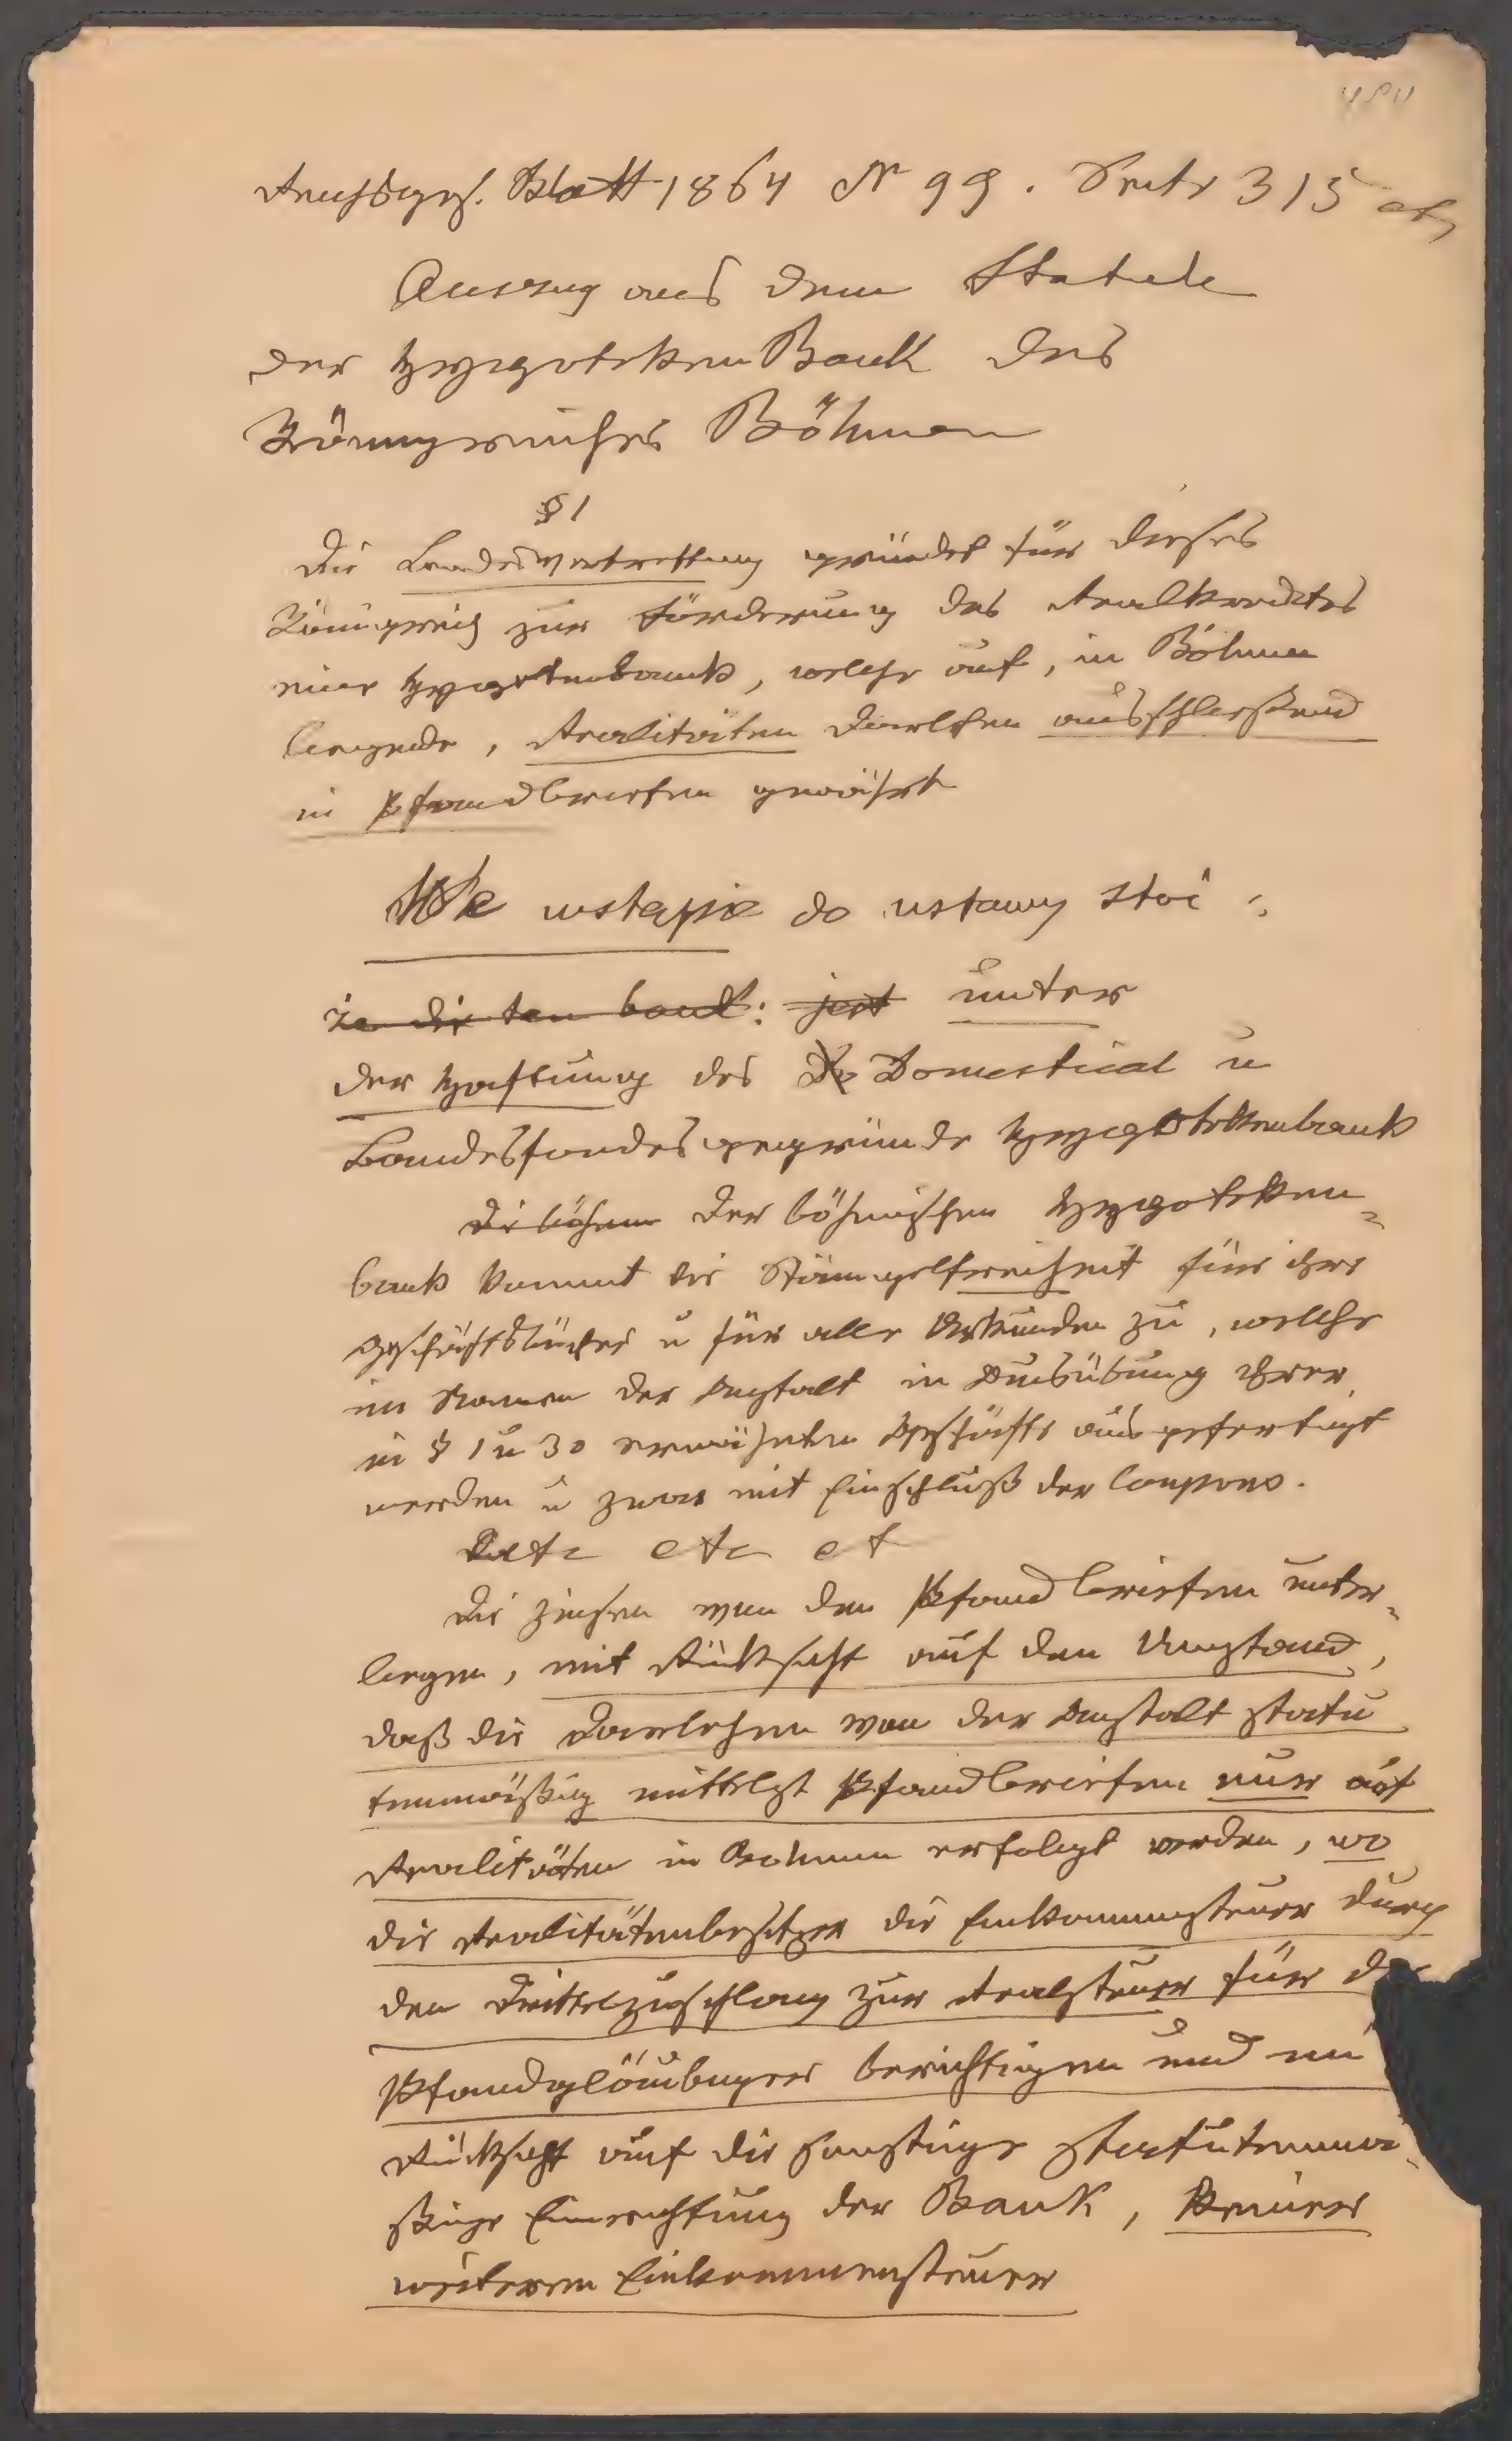 Reichsges. Blatt 1864 N 99. Seite 315
Auszug aus dem Statute
der Hypotheken Bank des
Königreiches Böhmen
§ 1
Die Landesvertrettung gründet für dieses
Königreich zur Förderung des Realkredites
eine Hypotekenbank, welche auf, in Böhmen
liegende, Realitäten Darlehen ausschließend
in Pfandbriefen gewährt
We wstępie do ustawy stoi:
że die ten bank: jest unter
der Haftung des Domestical u
Landesfondes gegründe Hypothekenbank
Di böhm der böhmischen Hypotheken
bank kommt die Stämpelfreiheit für ihre
Geschäftsbücher u für alle Urkunden zu, welche
im Namen der Anstalt in Ausübung ihrer
in § 1 u 30 erwähnten Geschäfte ausgefertigt
werden u zwar mit Einschluß der Coupons.
etc et
Die Zinsen von den Pfandbriefen unter
liegen, mit Rücksicht auf den Umstand,
daß die Darlehen von der Anstalt statu
tenmäßig mittelst Pfandbriefen nur auf
Realitäten in Bohmen erfolgt werden, wo
die Realitätenbesitzer die Einkommensteuer durch
den Drittelzuschlag zur Realsteuer für
Pfandgläubiger berichtigen und
Rücksicht auf die sonstige statutenmä
ßige Einrichtung der Bank, keiner
weiteren Einkommensteuer